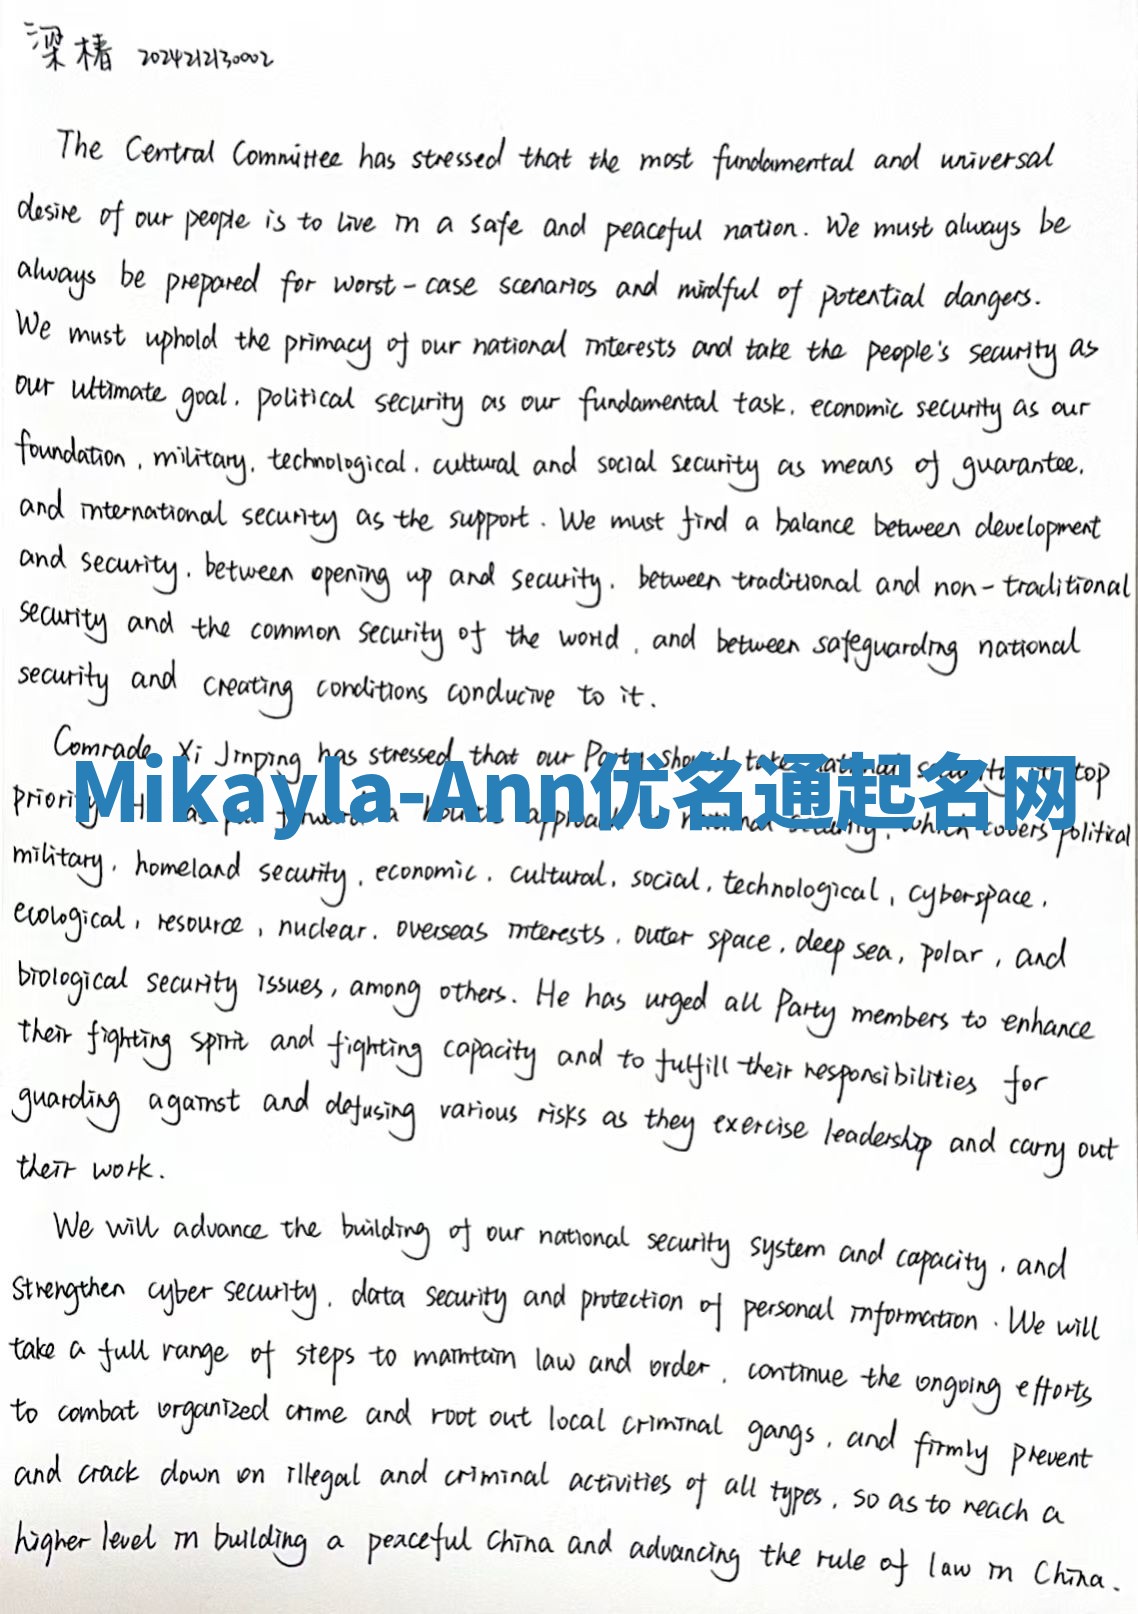 梁椿 2024212130002
The Central Committee has stressed that the most fundamental and universal
desire of our people is to live in a safe and peaceful nation. We must always be
always be prepared for worst-case scenarios and mindful of potential dangers.
We must uphold the primacy of our national interests and take the people's security as
our ultimate goal, political security as our fundamental task, economic security as our
foundation, military, technological, cultural and social security as means of guarantee,
and international security as the support. We must find a balance between development
and security, between opening up and security, between traditional and non-traditional
security and the common security of the world, and between safeguarding national
security and creating conditions conducive to it.
Comrade Xi Jinping has stressed that our Party should take national security top
Mikayla-Ann优名通起名网
priority. a approach national security, which covers political
military, homeland security, economic, cultural, social, technological, cyberspace,
ecological, resource, nuclear, overseas interests, outer space, deep sea, polar, and
biological security issues, among others. He has urged all Party members to enhance
their fighting spirit and fighting capacity and to fulfill their responsibilities for
guarding against and defusing various risks as they exercise leadership and carry out
their work.
We will advance the building of our national security system and capacity, and
strengthen cyber security, data security and protection of personal information. We will
take a full range of steps to maintain law and order, continue the ongoing efforts
to combat organized crime and root out local criminal gangs, and firmly prevent
and crack down on illegal and criminal activities of all types, so as to reach a
higher level in building a peaceful China and advancing the rule of law in China.